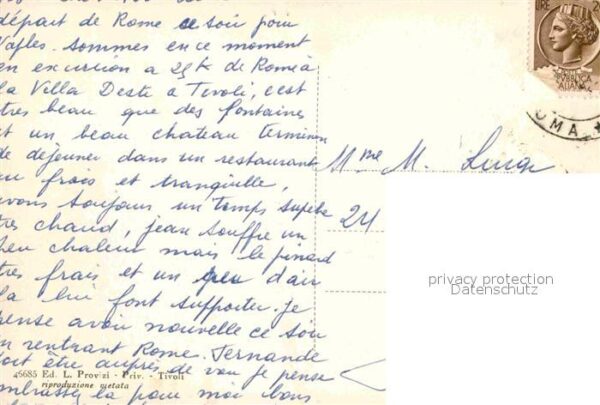 départ de Rome ce soir pour
Naples. Sommes en ce moment
en excursion a 25 k de Rome à
la Villa Deste a Tivoli, c'est
tres beau que des fontaines
et un beau chateau terminon
de déjeuner dans un restaurant
au frais et tranquille,
avons toujours un temps superbe
tres chaud, jean souffre un
peu chaleur mais le pinard
tres frais et un peu d'air
la lui font supporter. je
pense avoir nouvelle ce soir
en rentrant Rome. Fernande
doit être auprès de vou je pense
embrassez la pour moi bons
Mme M.
24
IRE 2
REPVBBLICA
ITALIANA
OMA
privacy protection
Datenschutz
45685 Ed. L. Provizi - Priv. - Tivoli
riproduzione vietata